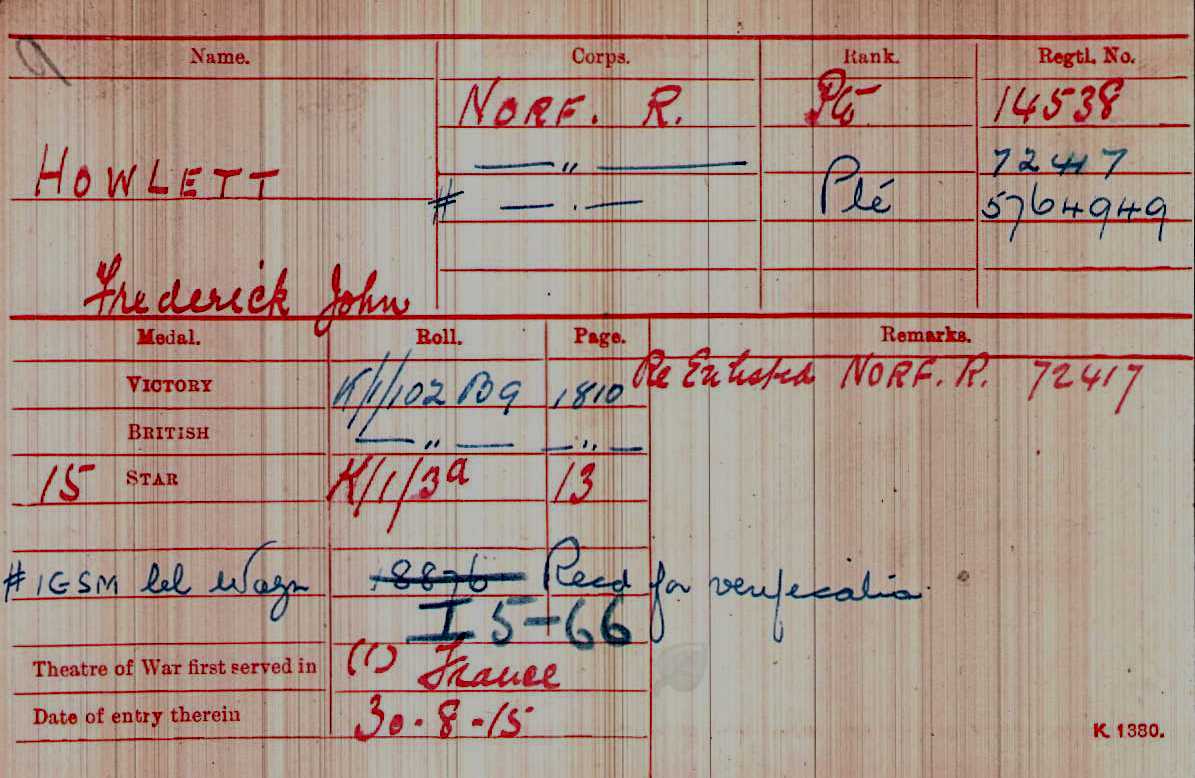 Name. Corps. Rank. Regtl. No.
NORF. R. Pte 14538
HOWLETT —〃— 72417
# — . — Pte 5764949
Frederick John
Medal. Roll. Page. Remarks.
VICTORY K/1/102 B9 1810 Re Enlisted NORF. R. 72417
BRITISH —〃— —〃—
15 STAR K/1/3a 13
# IGSM Wazn 18876 Recd for verification
I 5-66
Theatre of War first served in (1) France
Date of entry therein 30-8-15
K 1380.